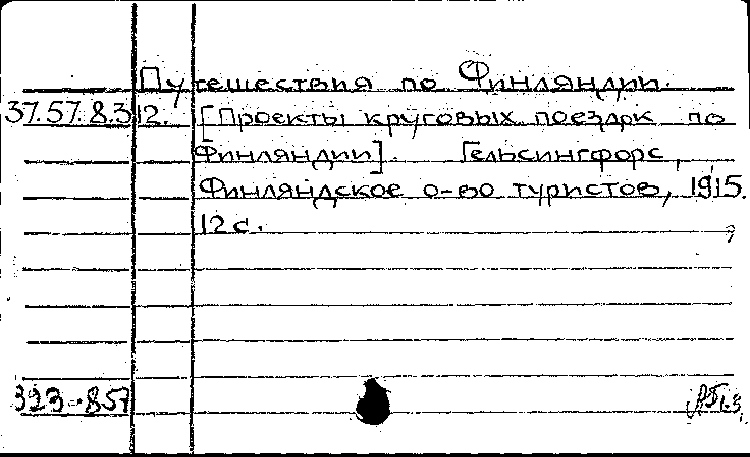 Путешествия по Финляндии.
37.57.8.312. [Проекты круговых поездок по
Финляндии]. Гельсингфорс,
Финляндское о-во туристов, 1915.
12 с.
323-857